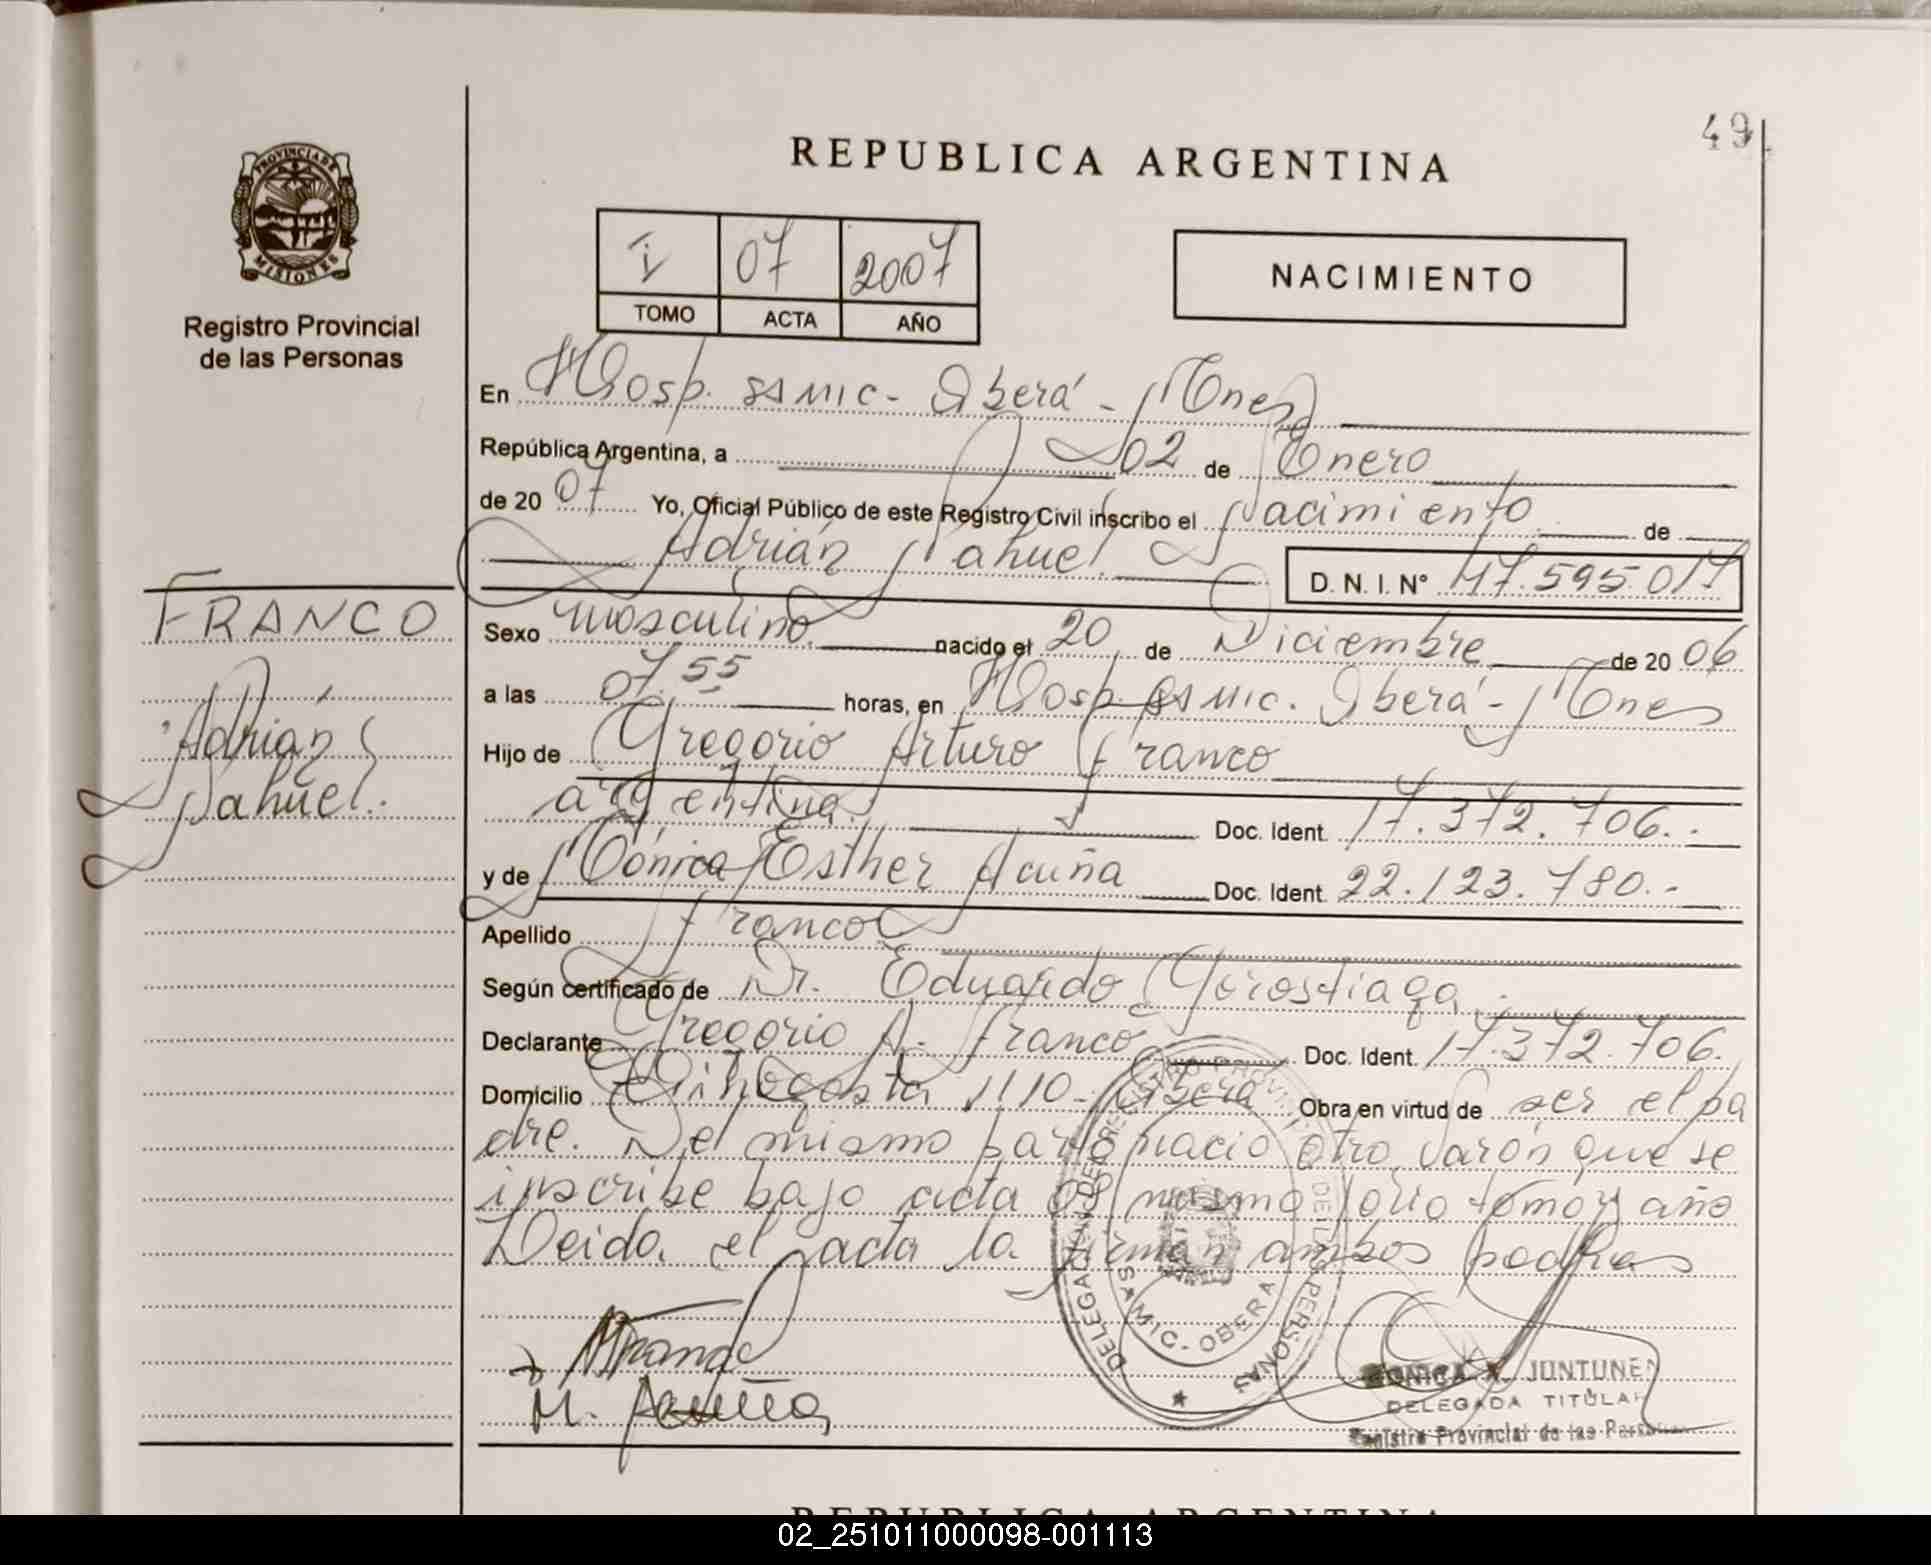 49
REPUBLICA ARGENTINA
PROVINCIA DE
MISIONES
Registro Provincial
de las Personas
I 07 2007
TOMO ACTA AÑO
NACIMIENTO
En Hosp. SAMIC - Oberá - Mnes
República Argentina, a 02 de Enero
de 20 07 Yo, Oficial Público de este Registro Civil inscribo el Nacimiento de
Adrián Nahuel D. N. I. N° 47.595.017
FRANCO
Adrián
Nahuel.
Sexo masculino nacido el 20 de Diciembre de 20 06
a las 07.55 horas, en Hosp. SAMIC. Oberá - Mnes
Hijo de Gregorio Arturo Franco
argentina. Doc. Ident. 17.372.706.-
y de Mónica Esther Acuña Doc. Ident. 22.123.780.-
Apellido Franco
Según certificado de Dr. Eduardo Gorostiaga.
Declarante Gregorio A. Franco Doc. Ident. 17.372.706.
Domicilio 1110- Oberá Obra en virtud de ser el pa
dre. Del mismo parto nació otro varón que se
inscribe bajo acta 08 mismo folio tomo y año
Leida el acta la firman ambos padres
M. Acuña
SAMIC - OBERA
JUNTUNEN
DELEGADA TITULAR
Registro Provincial de las Personas
REPUBLICA ARGENTINA
02_251011000098-001113